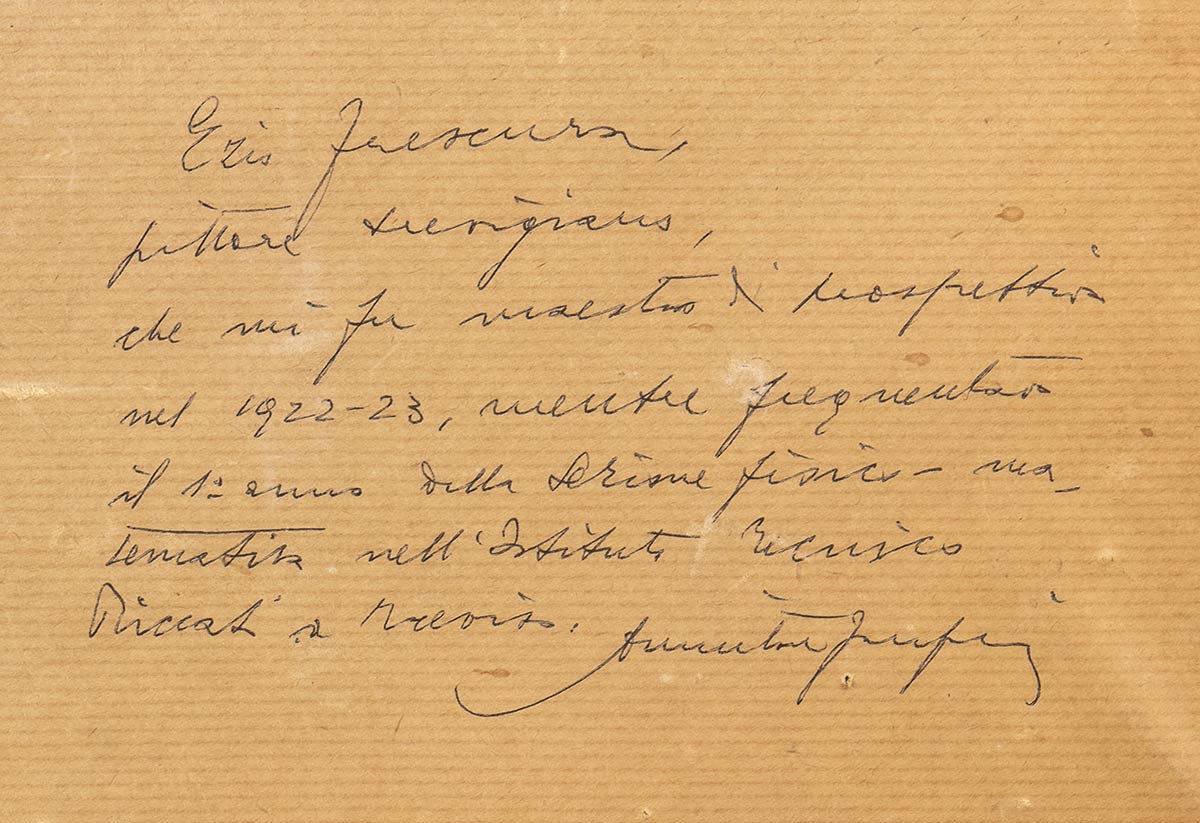 Ezio Frescura,
pittore trevigiano,
che mi fu maestro di prospettiva
nel 1922-23, mentre frequentavo
il 1º anno della Sezione fisico-ma-
tematica nell'Istituto Tecnico
Riccati a Treviso.